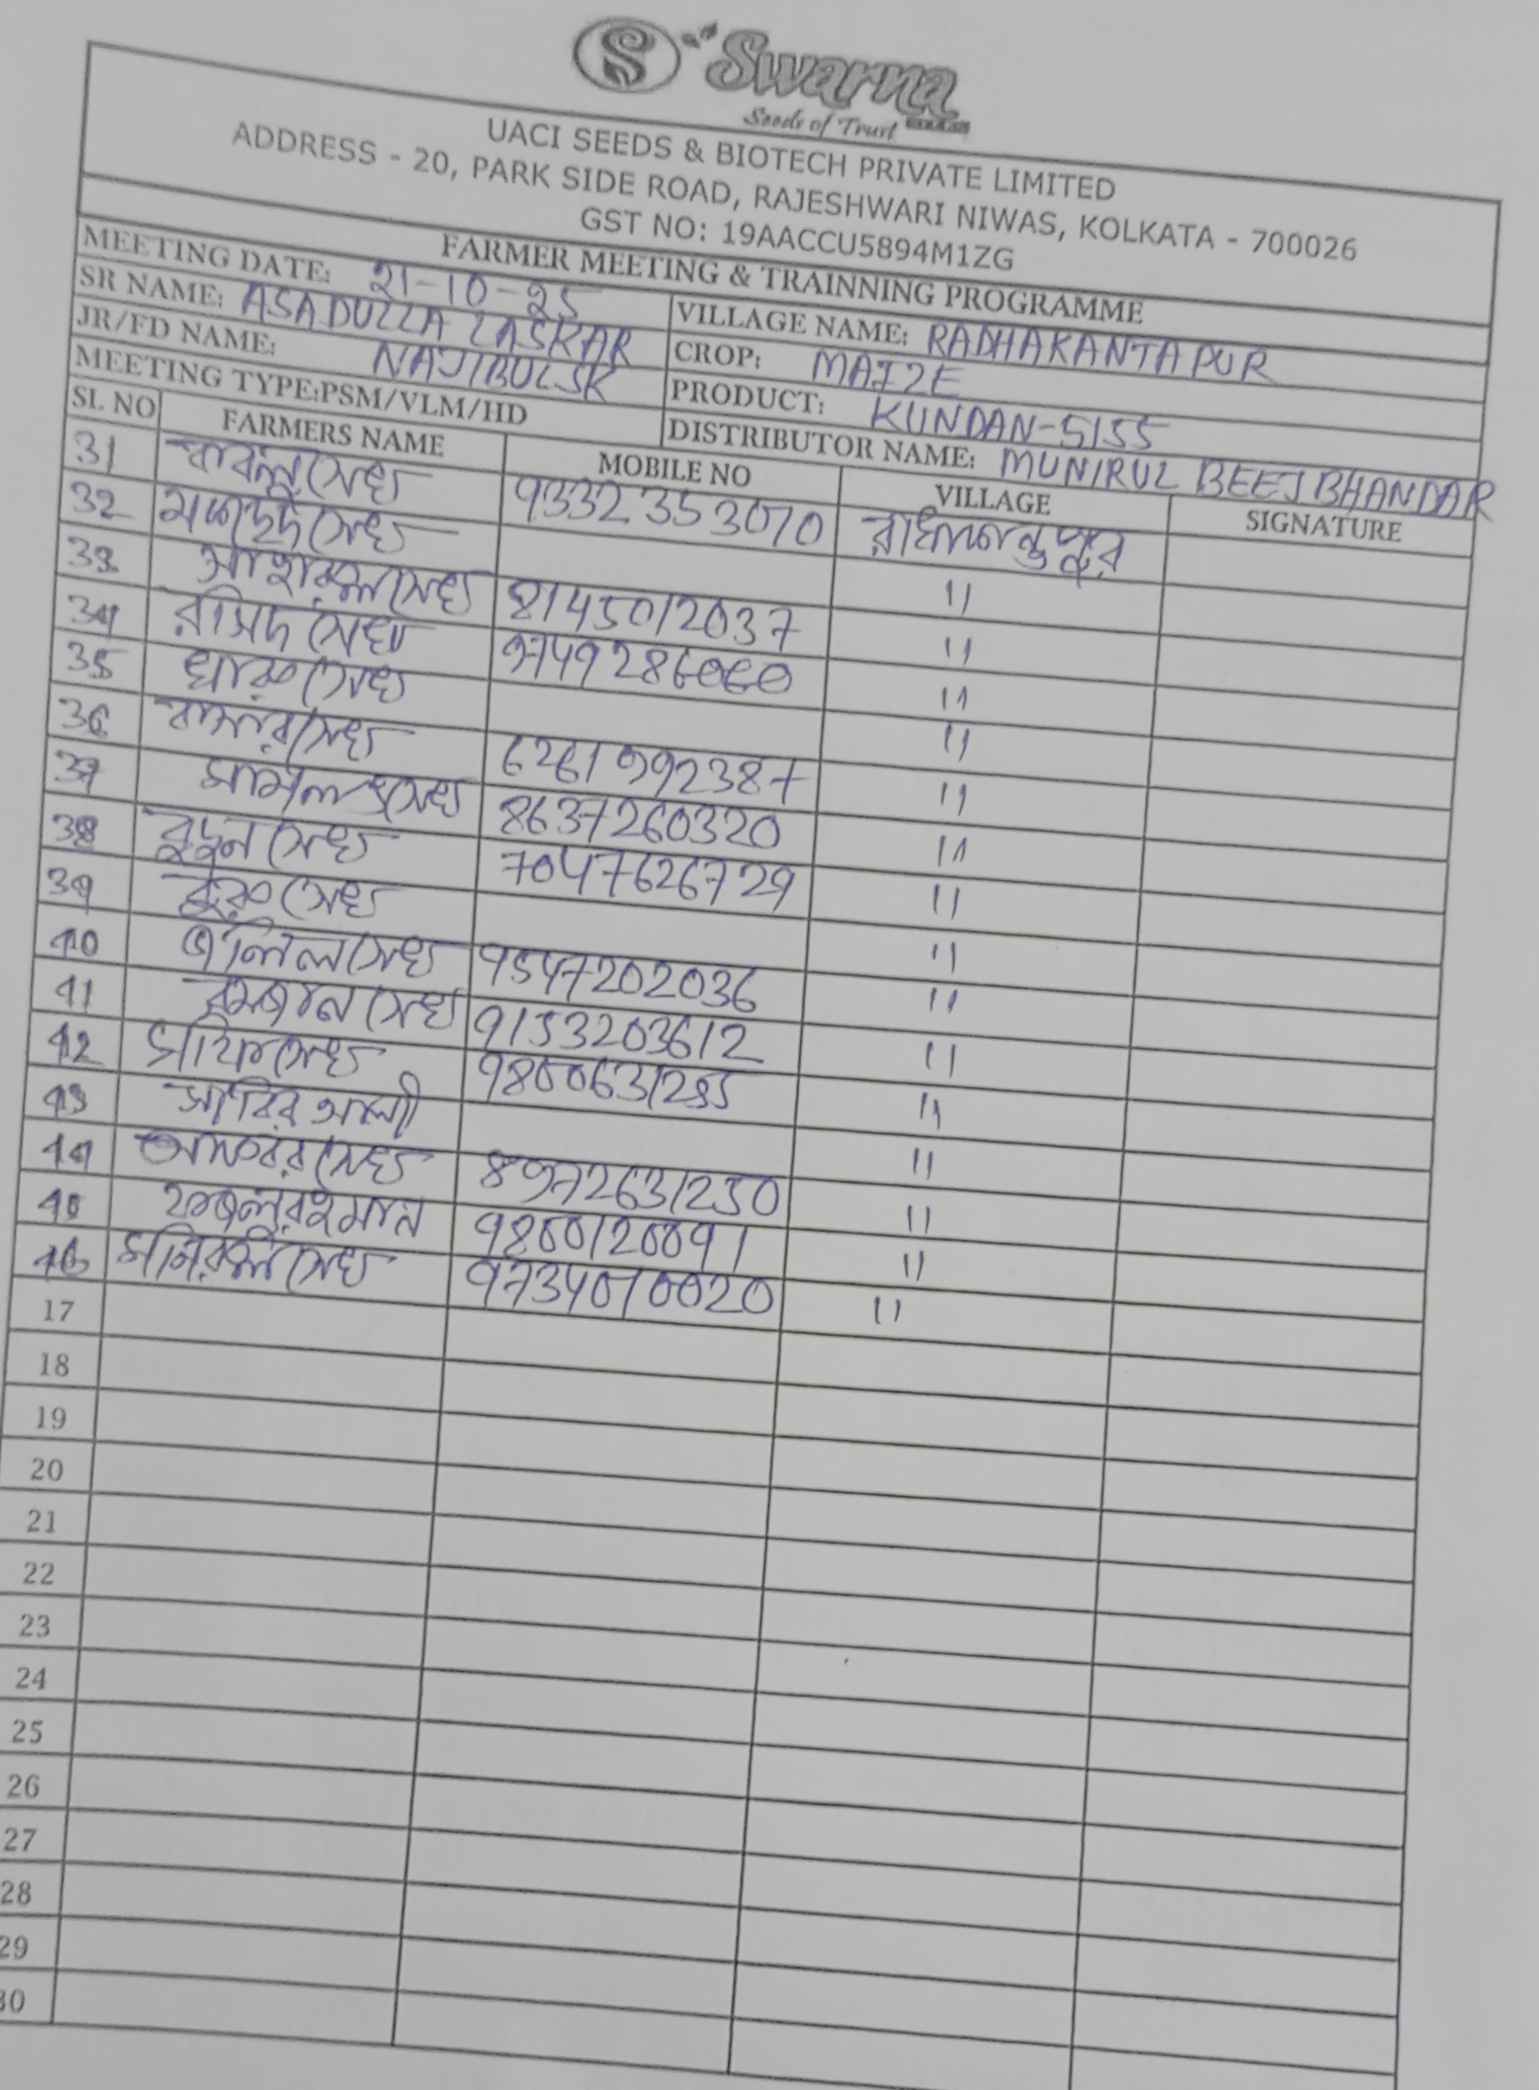 S Swarna
Seeds of Trust
UACI SEEDS & BIOTECH PRIVATE LIMITED
ADDRESS - 20, PARK SIDE ROAD, RAJESHWARI NIWAS, KOLKATA - 700026
GST NO: 19AACCU5894M1ZG
FARMER MEETING & TRAINNING PROGRAMME
MEETING DATE: 21-10-25 VILLAGE NAME: RADHAKANTAPUR
SR NAME: ASADULLA LASKAR CROP: MAIZE
JR/FD NAME: NAJIBUL SK PRODUCT: KUNDAN-5155
MEETING TYPE:PSM/VLM/HD DISTRIBUTOR NAME: MUNIRUL BEEJ BHANDAR
SL NO FARMERS NAME MOBILE NO VILLAGE SIGNATURE
31 বাবলু সেখ 9332353070 রাধাকান্তপুর
32 সেখ 11
33 সেখ 8145012037 11
34 রসিদ সেখ 9749286060 11
35 সেখ 11
36 সেখ 6261992387 11
37 সেখ 8637260320 11
38 সেখ 7047626729 11
39 সেখ 11
40 জলিল সেখ 9547202036 11
41 রমজান সেখ 9153203612 11
42 সেখ 9800631285 11
43 সাবির আলী 11
44 আকবর সেখ 8972631250 11
45 ফজলুর রহমান 9800120091 11
46 মনিরুল সেখ 9734010020 11
17
18
19
20
21
22
23
24
25
26
27
28
29
30